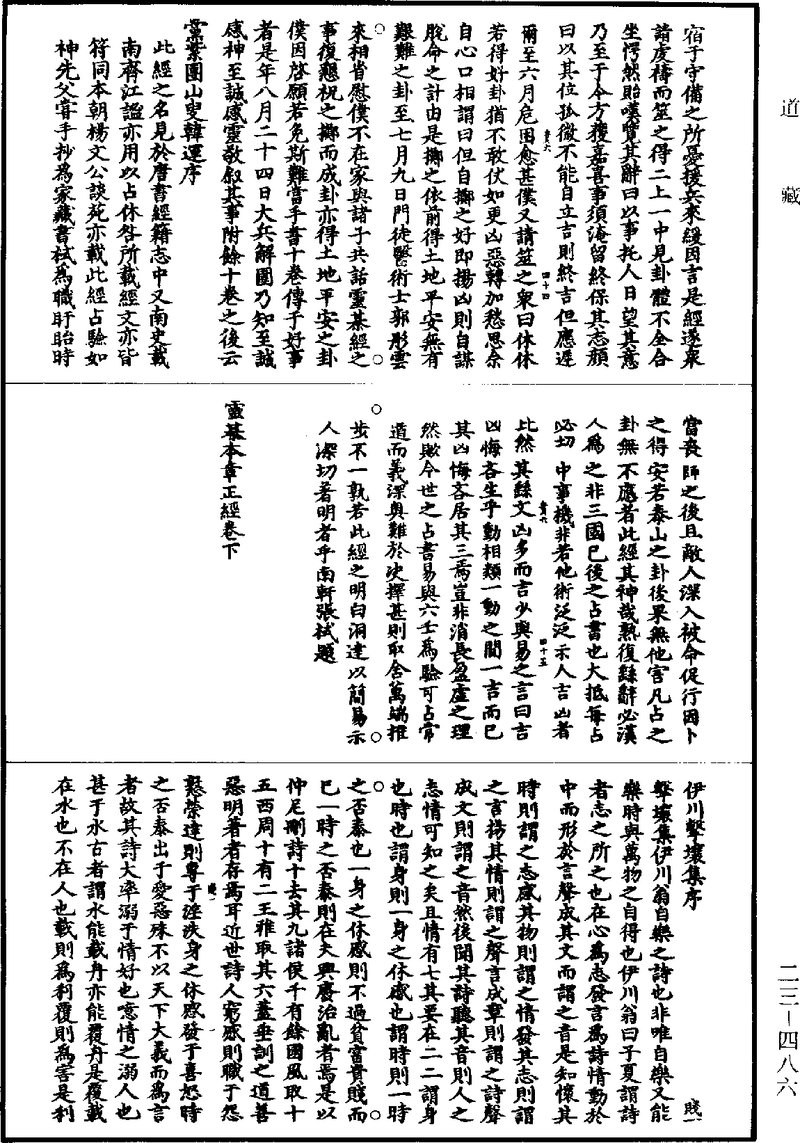 道藏
宿于守備之所憂援兵來緩因言是經遂衆
請虔禱而筮之得二上一中見卦體不全合
坐愕然貽嘆覽其辭曰以事托人日望其意
乃至于今方獲嘉喜事須淹留終保其志顏
曰以其位孤微不能自立吉則終吉但應遲
爾至六月危困愈甚僕又請筮之衆曰休休
若得好卦猶不敢伏如更凶惡轉加愁思余
自心口相謂曰但自擲之好即揚凶則自謀
脫命之計由是擲之依前得土地平安無有
艱難之卦至七月九日門徒醫術士郭彤雲
來相省慰僕不在家與諸子共話靈棊經之
事復懇祝之擲而成卦亦得土地平安之卦
僕因啓願若免斯難當手書十卷傳于好事
者是年八月二十四日大兵解圍乃知至誠
感神至誠感靈敬叙其事附餘十卷之後云
黨紫團山叟韓運序
此經之名見於唐書經籍志中又南史載
南齊江謐亦用以占休咎所載經文亦皆
符同本朝楊文公談苑亦載此經占驗如
神先父甞手抄爲家藏書栻爲職盱眙時
當喪師之後且敵人深入被命促行因卜
之得安若泰山之卦後果無他害凡占之
卦無不應者此經其神哉熟復繇辭必漢
人爲之非三國已後之占書也大抵每占
必切中事機非若他術泛泛示人吉凶者
比然其繇文凶多而吉少與易之言曰吉
凶悔吝生乎動相類一動之間一吉而已
其凶悔吝居其三焉豈非消長盈虛之理
然歟今世之占書易與六壬爲驗可占常
道而義深奧難於决擇甚則取舍萬端推
步不一孰若此經之明白洞達以簡易示
人深切著明者乎南軒張栻題
靈棊本章正經卷下
伊川擊壤集序
賤一
擊壤集伊川翁自樂之詩也非唯自樂又能
樂時與萬物之自得也伊川翁曰子夏謂詩
者志之所之也在心爲志發言爲詩情動於
中而形於言聲成其文而謂之音是知懷其
時則謂之志感其物則謂之情發其志則謂
之言揚其情則謂之聲言成章則謂之詩聲
成文則謂之音然後聞其詩聽其音則人之
志情可知之矣且情有七其要在二二謂身
也時也謂身則一身之休慼也謂時則一時
之否泰也一身之休慼則不過貧富貴賤而
已一時之否泰則在夫興廢治亂者焉是以
仲尼刪詩十去其九諸侯千有餘國風取十
五西周十有二王雅取其六蓋垂訓之道善
惡明著者存焉耳近世詩人窮慼則職于怨
憝榮達則專于淫泆身之休慼發于喜怒時
之否泰出于愛惡殊不以天下大義而爲言
者故其詩大率溺于情好也噫情之溺人也
甚于水古者謂水能載舟亦能覆舟是覆載
在水也不在人也載則爲利覆則爲害是利
二三－四八六